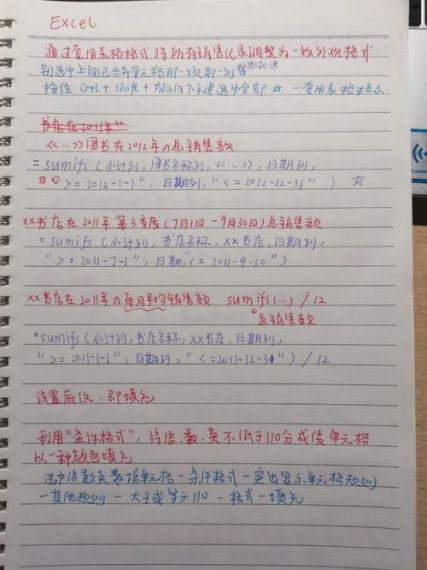 Excel
通过套用表格格式将所有销售记录调整为一致外观格式
别选中上面已合并单元格那一项那一列
按住 Ctrl + shift + 方向向下键选中全部 ☆ — 套用表格样式
书店在2011年
《…》图书在2012年の总销售额
= sumifs (小计列, 图书名称列, 《…》, 日期列,
">= 2012-1-1", 日期列, "<= 2012-12-31") ☆
xx书店在2011年第3季度(7月1日-9月30日)总销售额
= sumifs (小计列, 书店名称, xx书店, 日期列,
">= 2011-7-1", 日期, "<= 2011-9-30")
xx书店在2011年の每月平均销售额 sumifs(…) / 12
总销售额
= sumifs (小计列, 书店名称, xx书店, 日期列,
">= 2011-1-1", 日期列, "<= 2011-12-31") / 12
设置底纹: 即填充
利用"条件格式", 将语、数、英不低于110分成绩单元格
以一种颜色填充
选中语数英数据单元格 — 条件格式 — 突出显示单元格规则
— 其他规则 — 大于或等于110 — 格式 — 填充.